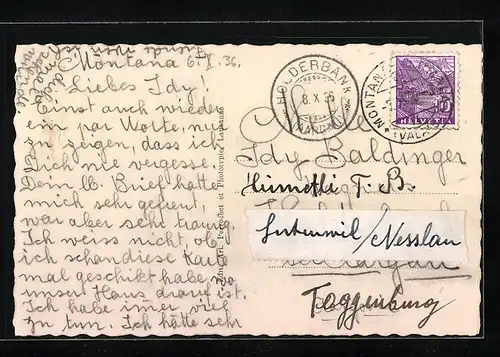 Montana 6. X. 36.
Liebes Idy!
Einst auch wieder
ein par Worte, nur
zu zeigen dass ich
Dich nie vergesse.
Dein lb. Brief hatte
mich sehr gefreut,
war aber sehr traurig.
Ich weiss nicht, ob
ich schon diese Karte
mal geschikt habe, wo
unser Haus drauf ist.
Ich habe imer viel
zu tun. Ich hätte sehr
Perrochet et Phototypie Lausanne
HOLDERBANK
8. X. 36
(AARGAU)
MONTANA
(VALAIS)
HELVETIA
10
Idy Baldinger
Himmetli T. B.
Lutenwil/Nesslau
Aargau
Toggenburg